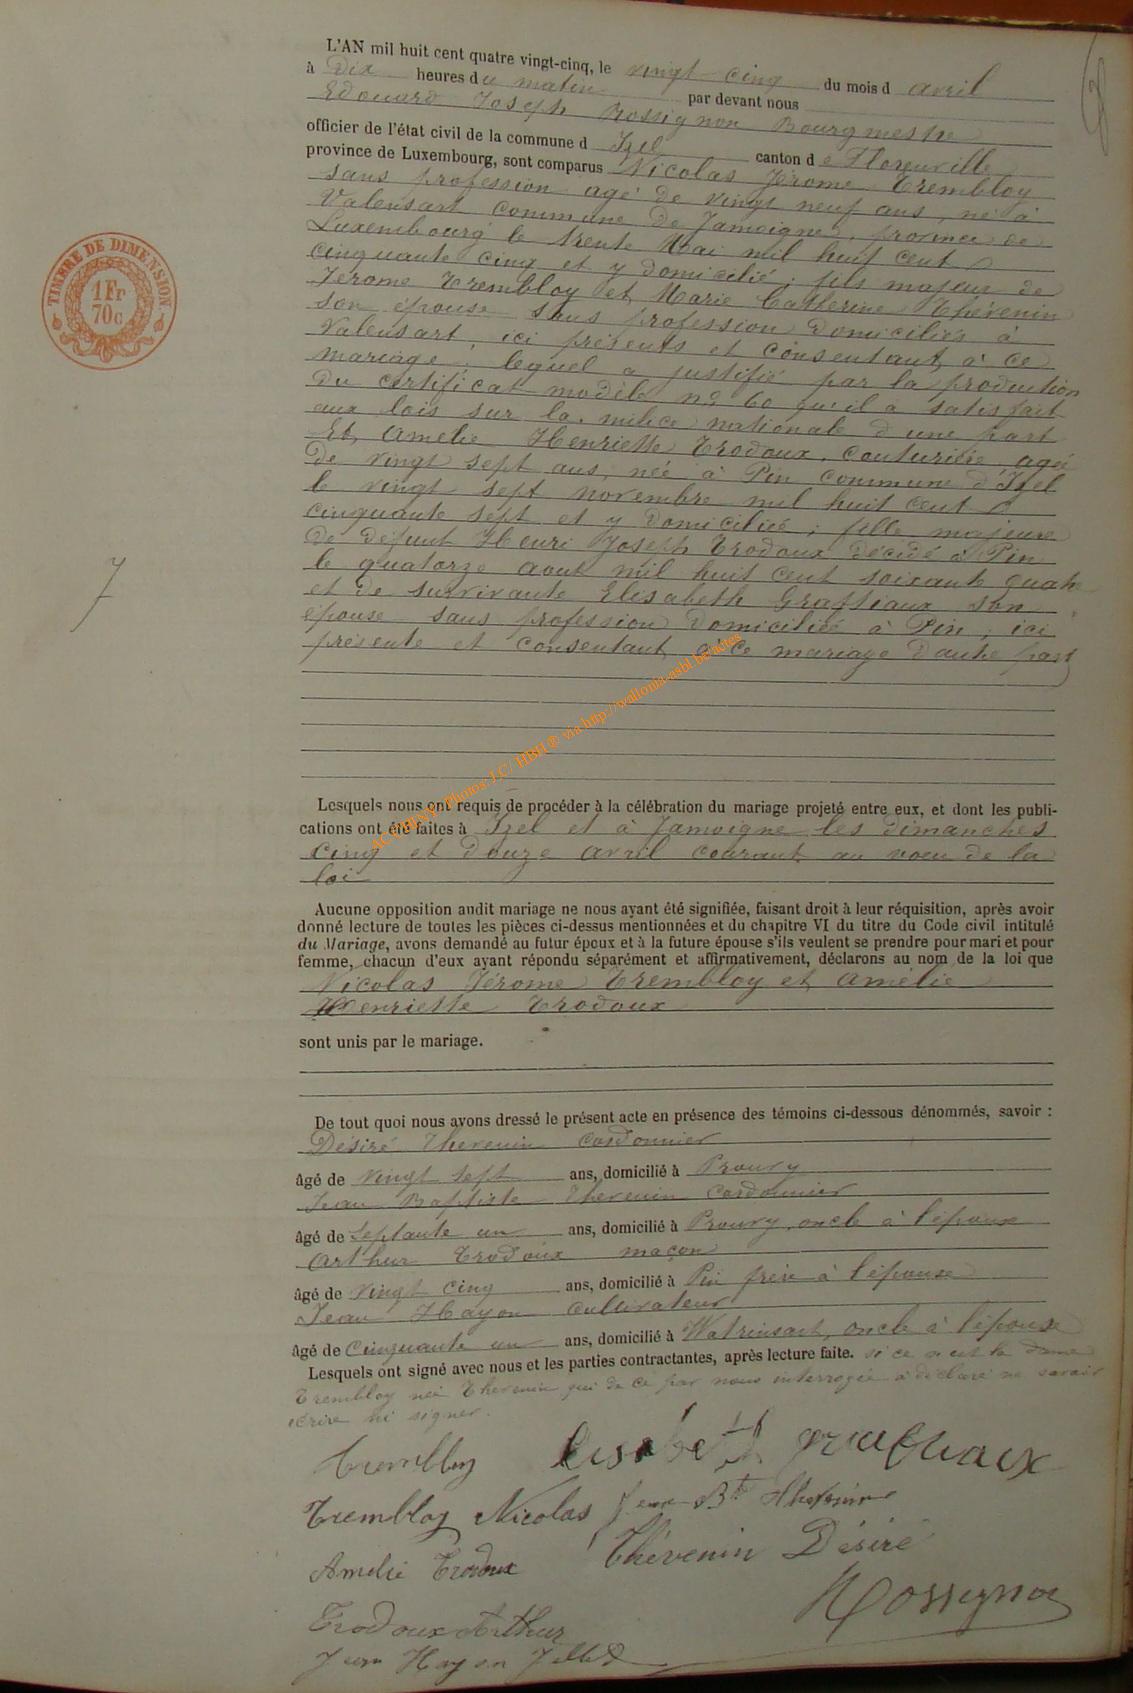 L'AN mil huit cent quatre vingt-cinq, le vingt cinq du mois d avril
à Dix heures du matin par devant nous
Edouard Joseph Rossignon Bourgmestre
officier de l'état civil de la commune d Izel canton de Florenville
province de Luxembourg, sont comparus Nicolas Jérome Trembloy
sans profession agé de vingt neuf ans, né à
Valensart commune de Jamoigne, province de
Luxembourg le trente Mai mil huit cent
cinquante cinq et y domicilié ; fils majeur de
Jérome Trembloy et Marie Catherine Thévenin
son épouse sans profession domiciliés à
Valensart, ici présents et consentant à ce
mariage, lequel a justifié par la production
du certificat modèle no 60 qu'il a satisfait
aux lois sur la milice nationale d'une part
Et Amélie Henriette Trodoux, couturière agée
de vingt sept ans, née à Pin commune d'Izel
le vingt sept novembre mil huit cent
cinquante sept et y domiciliée ; fille majeure
de défunt Henri Joseph Trodoux décédé à Pin
le quatorze aout mil huit cent soixante quatre
et de survivante Elisabeth Graffiaux son
épouse sans profession domiciliée à Pin, ici
présente et consentant à ce mariage d'autre part
7
TIMBRE DE DIMENSION
1 Fr
70c
ACCHINY Photos J.C. HBH ® via http://wallonia-asbl.be/actes
Lesquels nous ont requis de procéder à la célébration du mariage projeté entre eux, et dont les publi-
cations ont été faites à Izel et à Jamoigne les dimanches
cinq et douze avril courant au voeu de la
loi
Aucune opposition audit mariage ne nous ayant été signifiée, faisant droit à leur réquisition, après avoir
donné lecture de toutes les pièces ci-dessus mentionnées et du chapitre VI du titre du Code civil intitulé
du Mariage, avons demandé au futur époux et à la future épouse s'ils veulent se prendre pour mari et pour
femme, chacun d'eux ayant répondu séparément et affirmativement, déclarons au nom de la loi que
Nicolas Jérome Trembloy et Amélie
Henriette Trodoux
sont unis par le mariage.
De tout quoi nous avons dressé le présent acte en présence des témoins ci-dessous dénommés, savoir :
Désiré Thevenin cordonnier
âgé de vingt sept ans, domicilié à Prouvy
Jean Baptiste Thevenin cordonnier
âgé de Septante un ans, domicilié à Prouvy, oncle à l'époux
Arthur Trodoux maçon
âgé de vingt cinq ans, domicilié à Pin frère à l'épouse
Jean Hayon cultivateur
âgé de Cinquante un ans, domicilié à Watrinsart, oncle à l'épouse
Lesquels ont signé avec nous et les parties contractantes, après lecture faite. si ce n'est la dame
Trembloy née Thevenin qui de ce par nous interrogée a déclaré ne savoir
écrire ni signer.
Trembloy Elisabeth graffiaux
Trembloy Nicolas Jean Bte Thevenin
Amélie Trodoux Thévenin Désiré
Rossignon
Trodoux Arthur
Jean Hayon